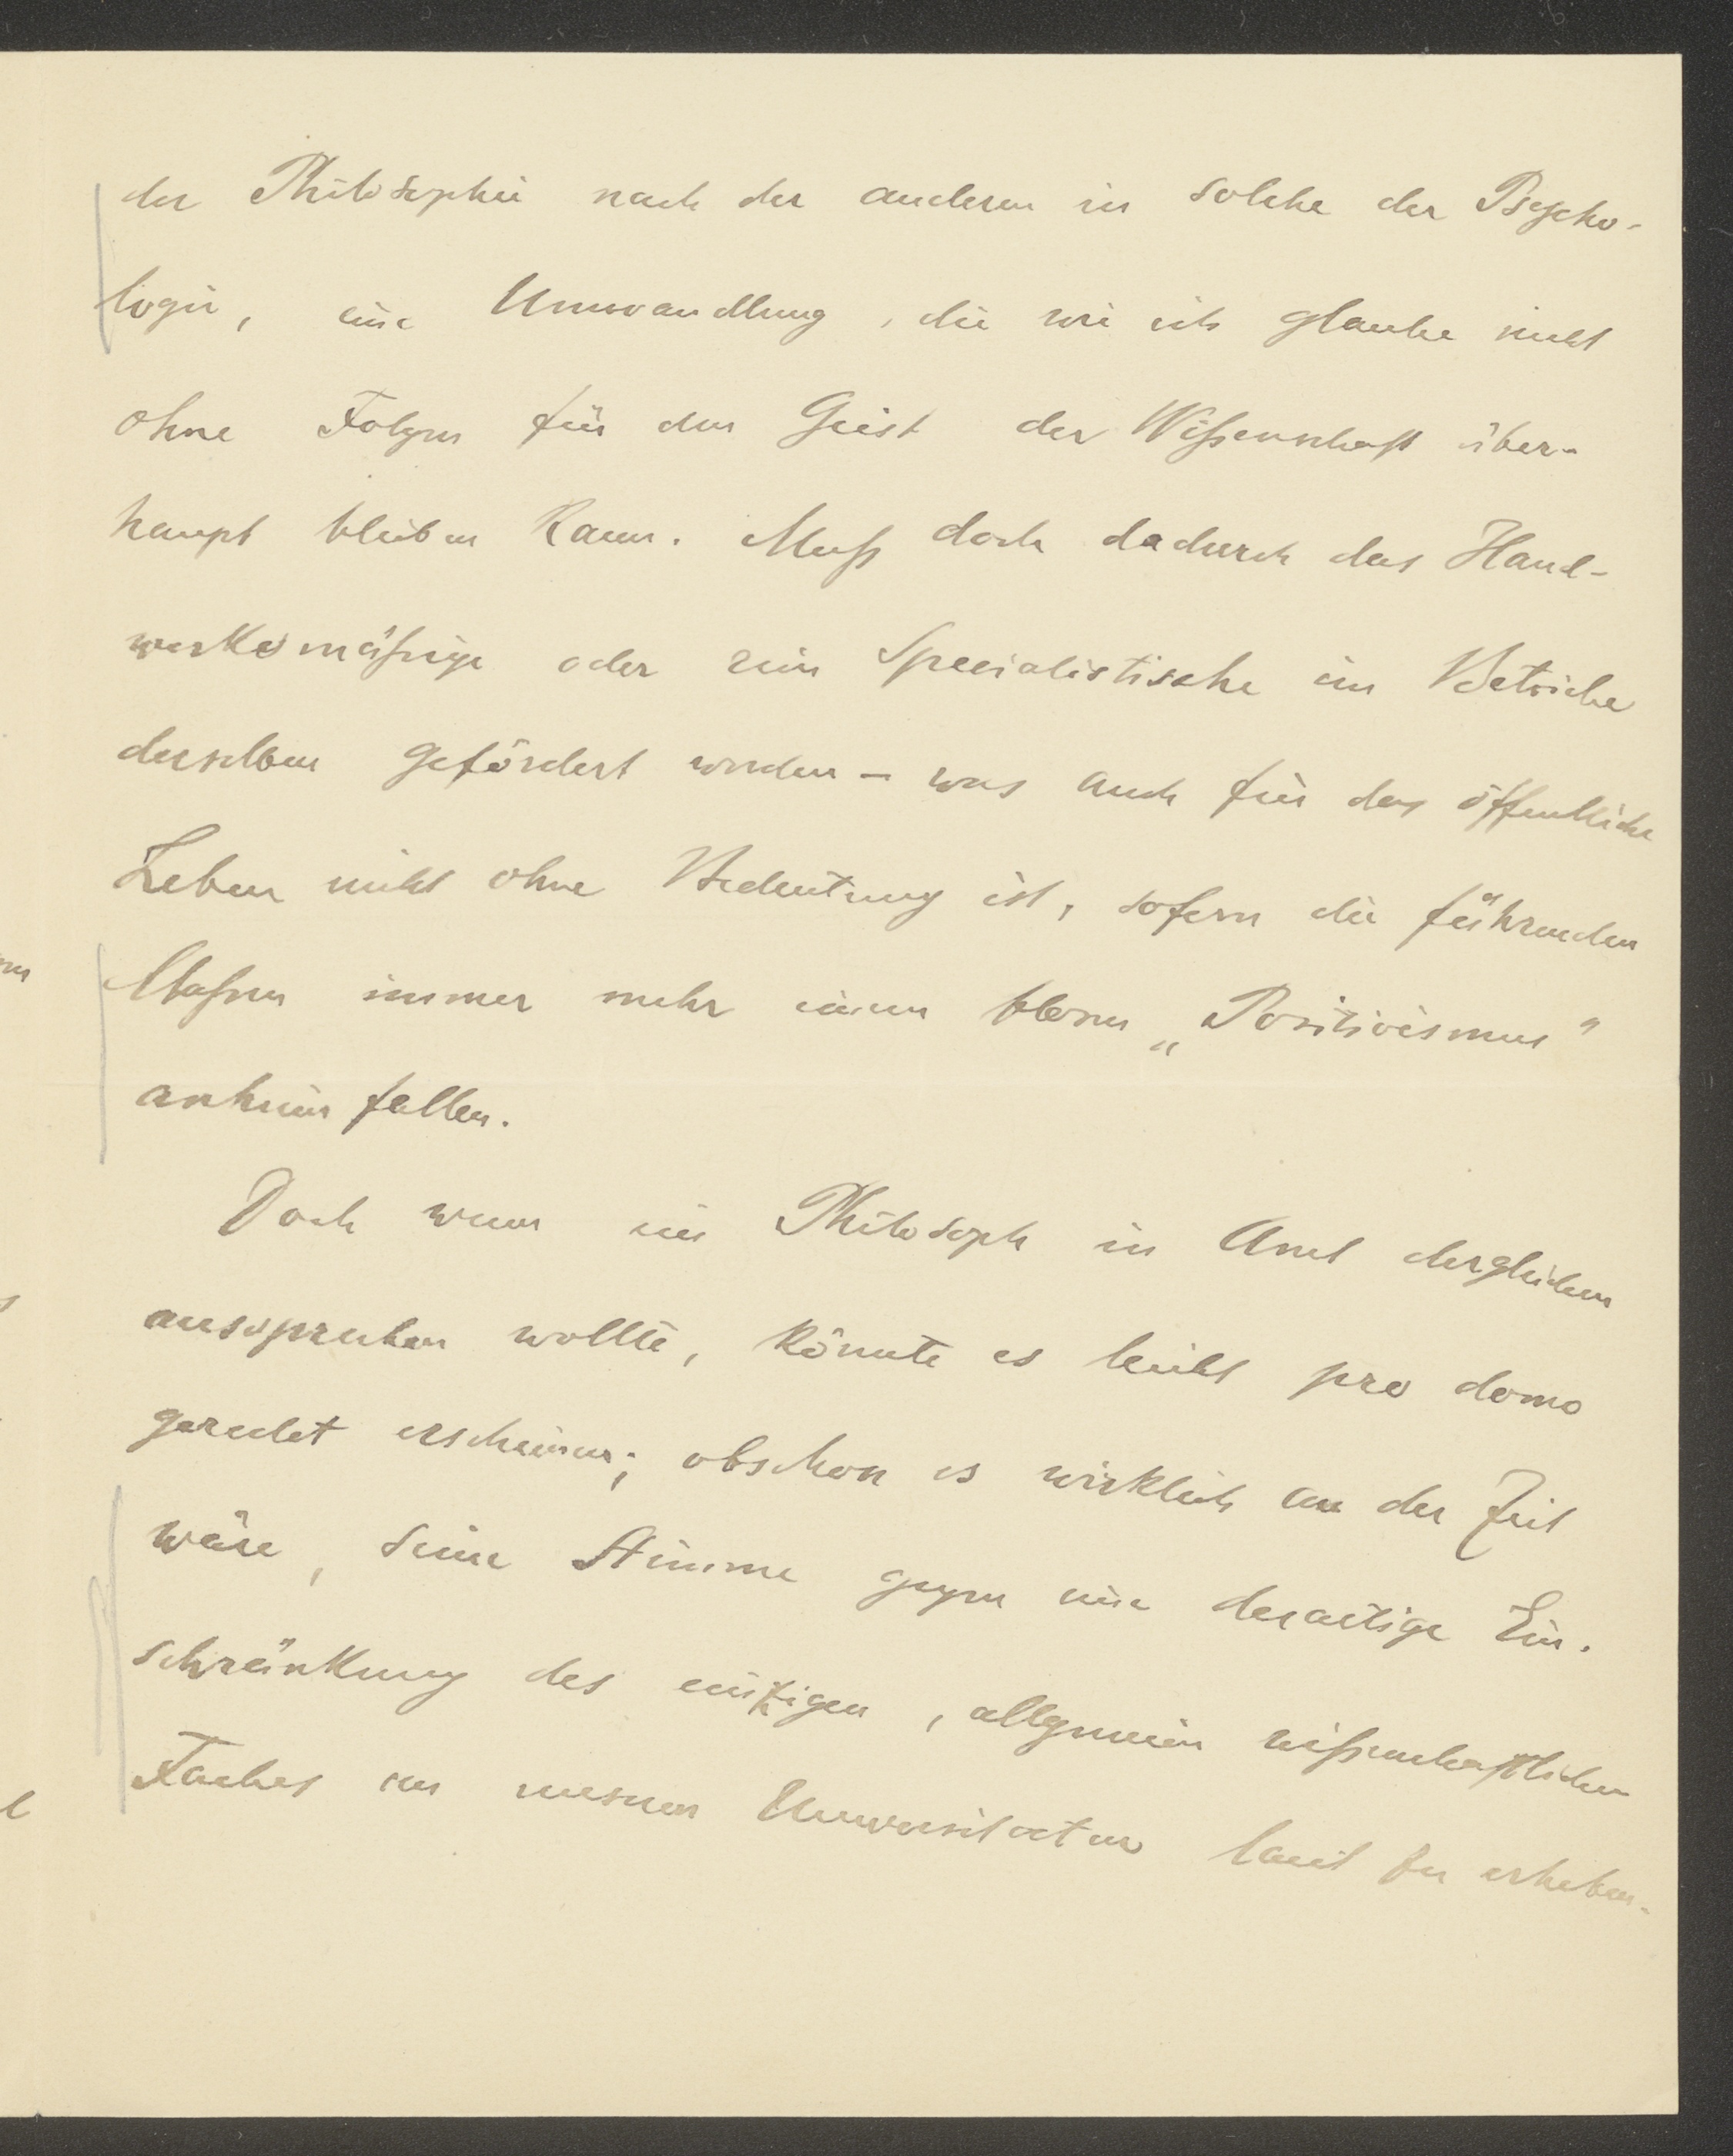 der Philosophie nach der anderen in solche der Psycho-
logie, eine Umwandlung, die wie ich glaube nicht
ohne Folgen für den Geist der Wißenschaft über-
haupt bleiben kann. Muß doch dadurch das Hand-
werksmäßige oder rein Specialistische im Betriebe
derselben gefördert werden – was auch für das öffentliche
Leben nicht ohne Bedeutung ist, sofern die führenden
Klaßen immer mehr einem blosen „Positivismus"
anheim fallen.
Doch wenn ein Philosoph in Amt dergleichen
aussprechen wollte, könnte es leicht pro domo
geredet erscheinen; obschon es wirklich an der Zeit
wäre, seine Stimme gegen eine derartige Ein-
schränkung des einzigen, allgemein wißenschaftlichen
Faches an unseren Universitäten laut zu erheben.